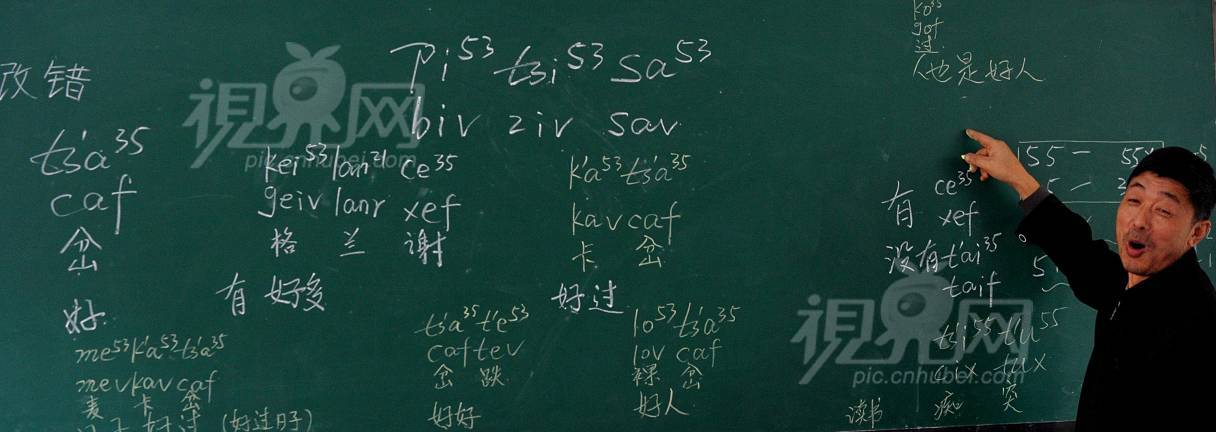 改错
pi⁵³ tsi⁵³ sa⁵³
biv ziv sav
ts'a³⁵
caf
岔
好
kei⁵³ lan²¹ ce³⁵
geiv lanr xef
格 兰 谢
有 好多
k'a⁵³ ts'a³⁵
kav caf
卡 岔
好过
me⁵³ k'a⁵³ ts'a³⁵
mev kav caf
麦 卡 岔
好过 (好过日子)
ts'a³⁵ t'e⁵³
caf tev
岔 跌
好好
lo⁵³ ts'a³⁵
lov caf
裸 岔
好人
ko³⁵
gof
过
人也是好人
有 ce³⁵
xef
没有 t'ai³⁵
taif
ts'i⁵⁵ t'u⁵⁵
cix tux
读书 痴 突
155 — 55
視界网
pic.cnhubei.com
視界网
pic.cnhubei.com